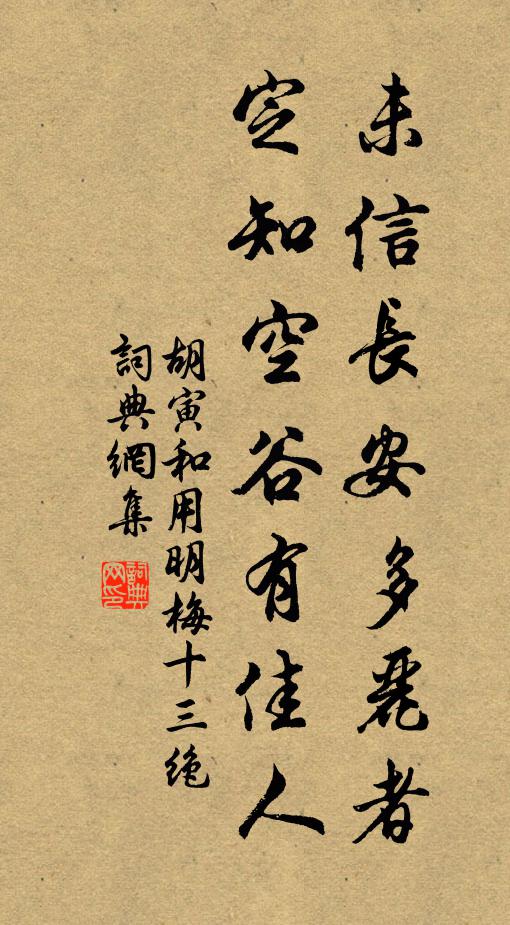 未信長安多麗者
定知空谷有佳人
胡寅和用明梅十三绝
詞典網集
詞典网印